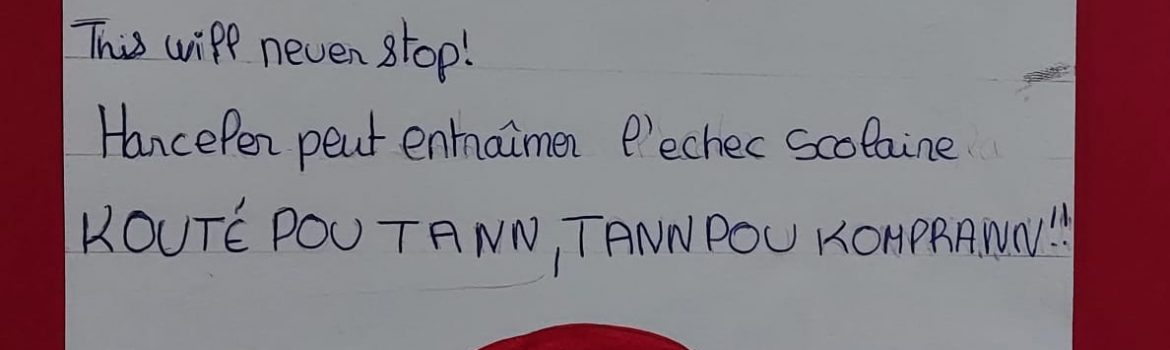 This will never stop!
Harceler peut entraîner l'echec scolaire
KOUTÉ POU TANN, TANN POU KOMPRANN!!